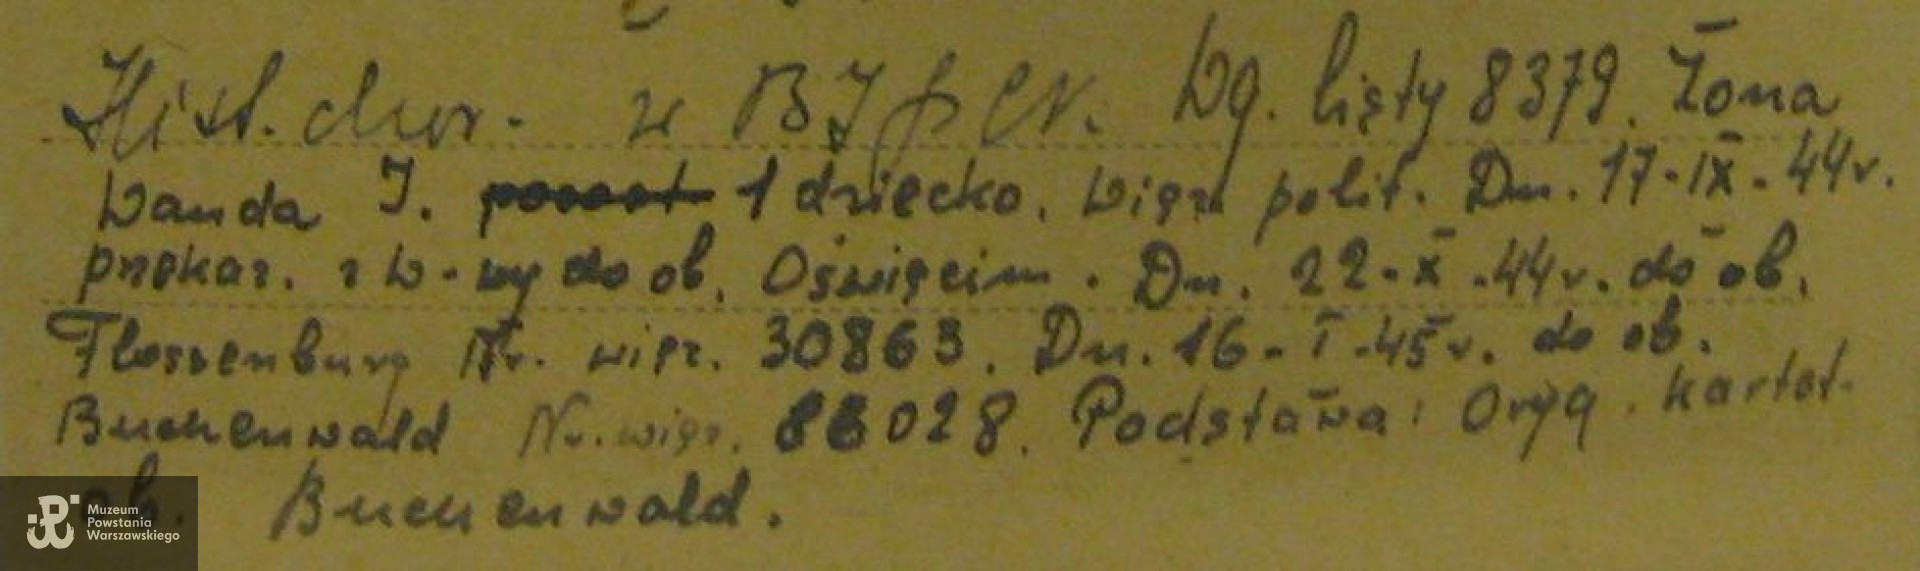 Hist. chor. w BJ PCK. Wg. listy 8379. Żona
Wanda J. 1 dziecko. Więz polit. Dn. 17-IX-44r.
przekaz. z W-wy do ob. Oświęcim. Dn. 22-X-44r. do ob.
Flossenburg Nr. więz. 30863. Dn. 16-I-45r. do ob.
Buchenwald Nr. więz. 86028. Podstawa: Oryg. kartot.
ob. Buchenwald.
Muzeum
Powstania
Warszawskiego